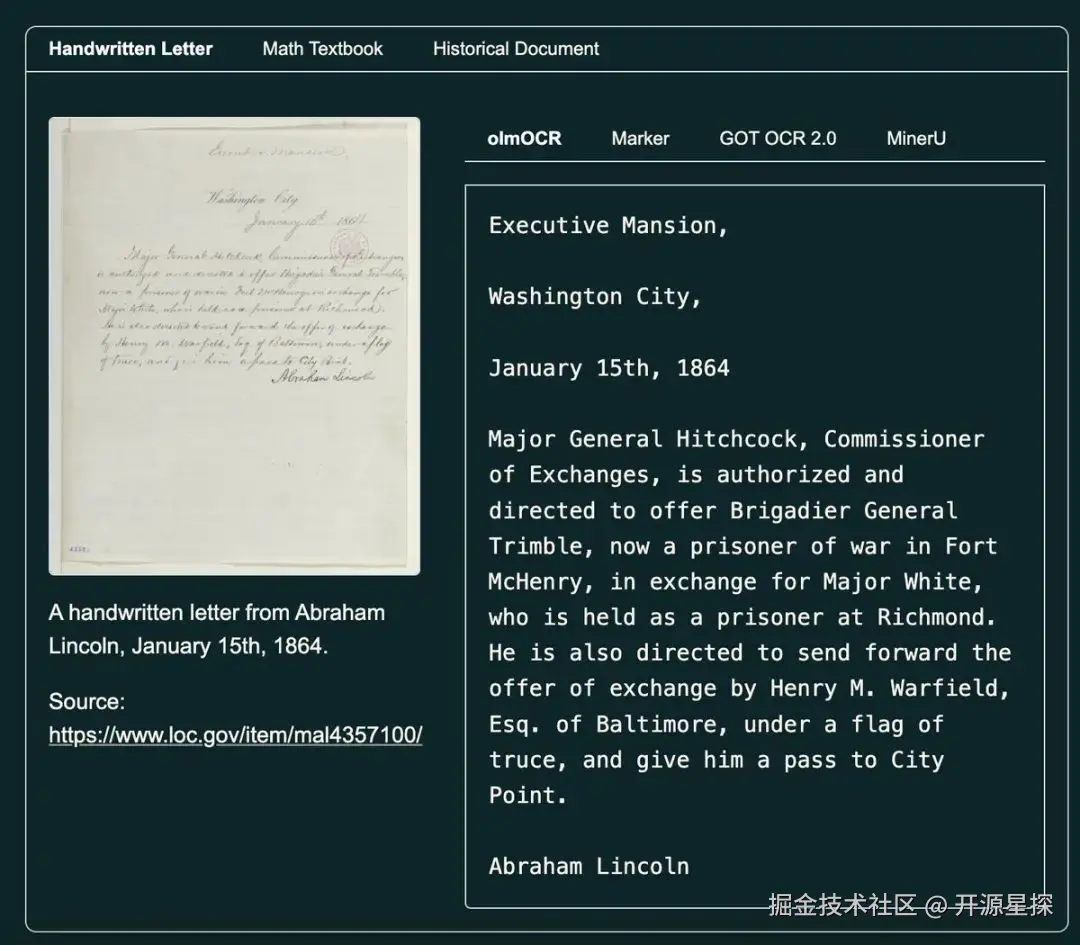 Handwritten Letter
Math Textbook
Historical Document
Executive Mansion,
Washington City
January 15th 1864
Major General Hitchcock, Commissioner of Exchanges,
is authorized and directed to offer Brigadier General Trimble,
now a prisoner of war in Fort McHenry in exchange for
Major White, who is held as a prisoner at Richmond.
He is also directed to send forward the offer of exchange
by Henry M. Warfield, Esq. of Baltimore, under a flag
of truce, and give him a pass to City Point.
Abraham Lincoln
A handwritten letter from Abraham
Lincoln, January 15th, 1864.
Source:
https://www.loc.gov/item/mal4357100/
olmOCR
Marker
GOT OCR 2.0
MinerU
Executive Mansion,
Washington City,
January 15th, 1864
Major General Hitchcock, Commissioner
of Exchanges, is authorized and
directed to offer Brigadier General
Trimble, now a prisoner of war in Fort
McHenry, in exchange for Major White,
who is held as a prisoner at Richmond.
He is also directed to send forward the
offer of exchange by Henry M. Warfield,
Esq. of Baltimore, under a flag of
truce, and give him a pass to City
Point.
Abraham Lincoln
掘金技术社区 @ 开源星探